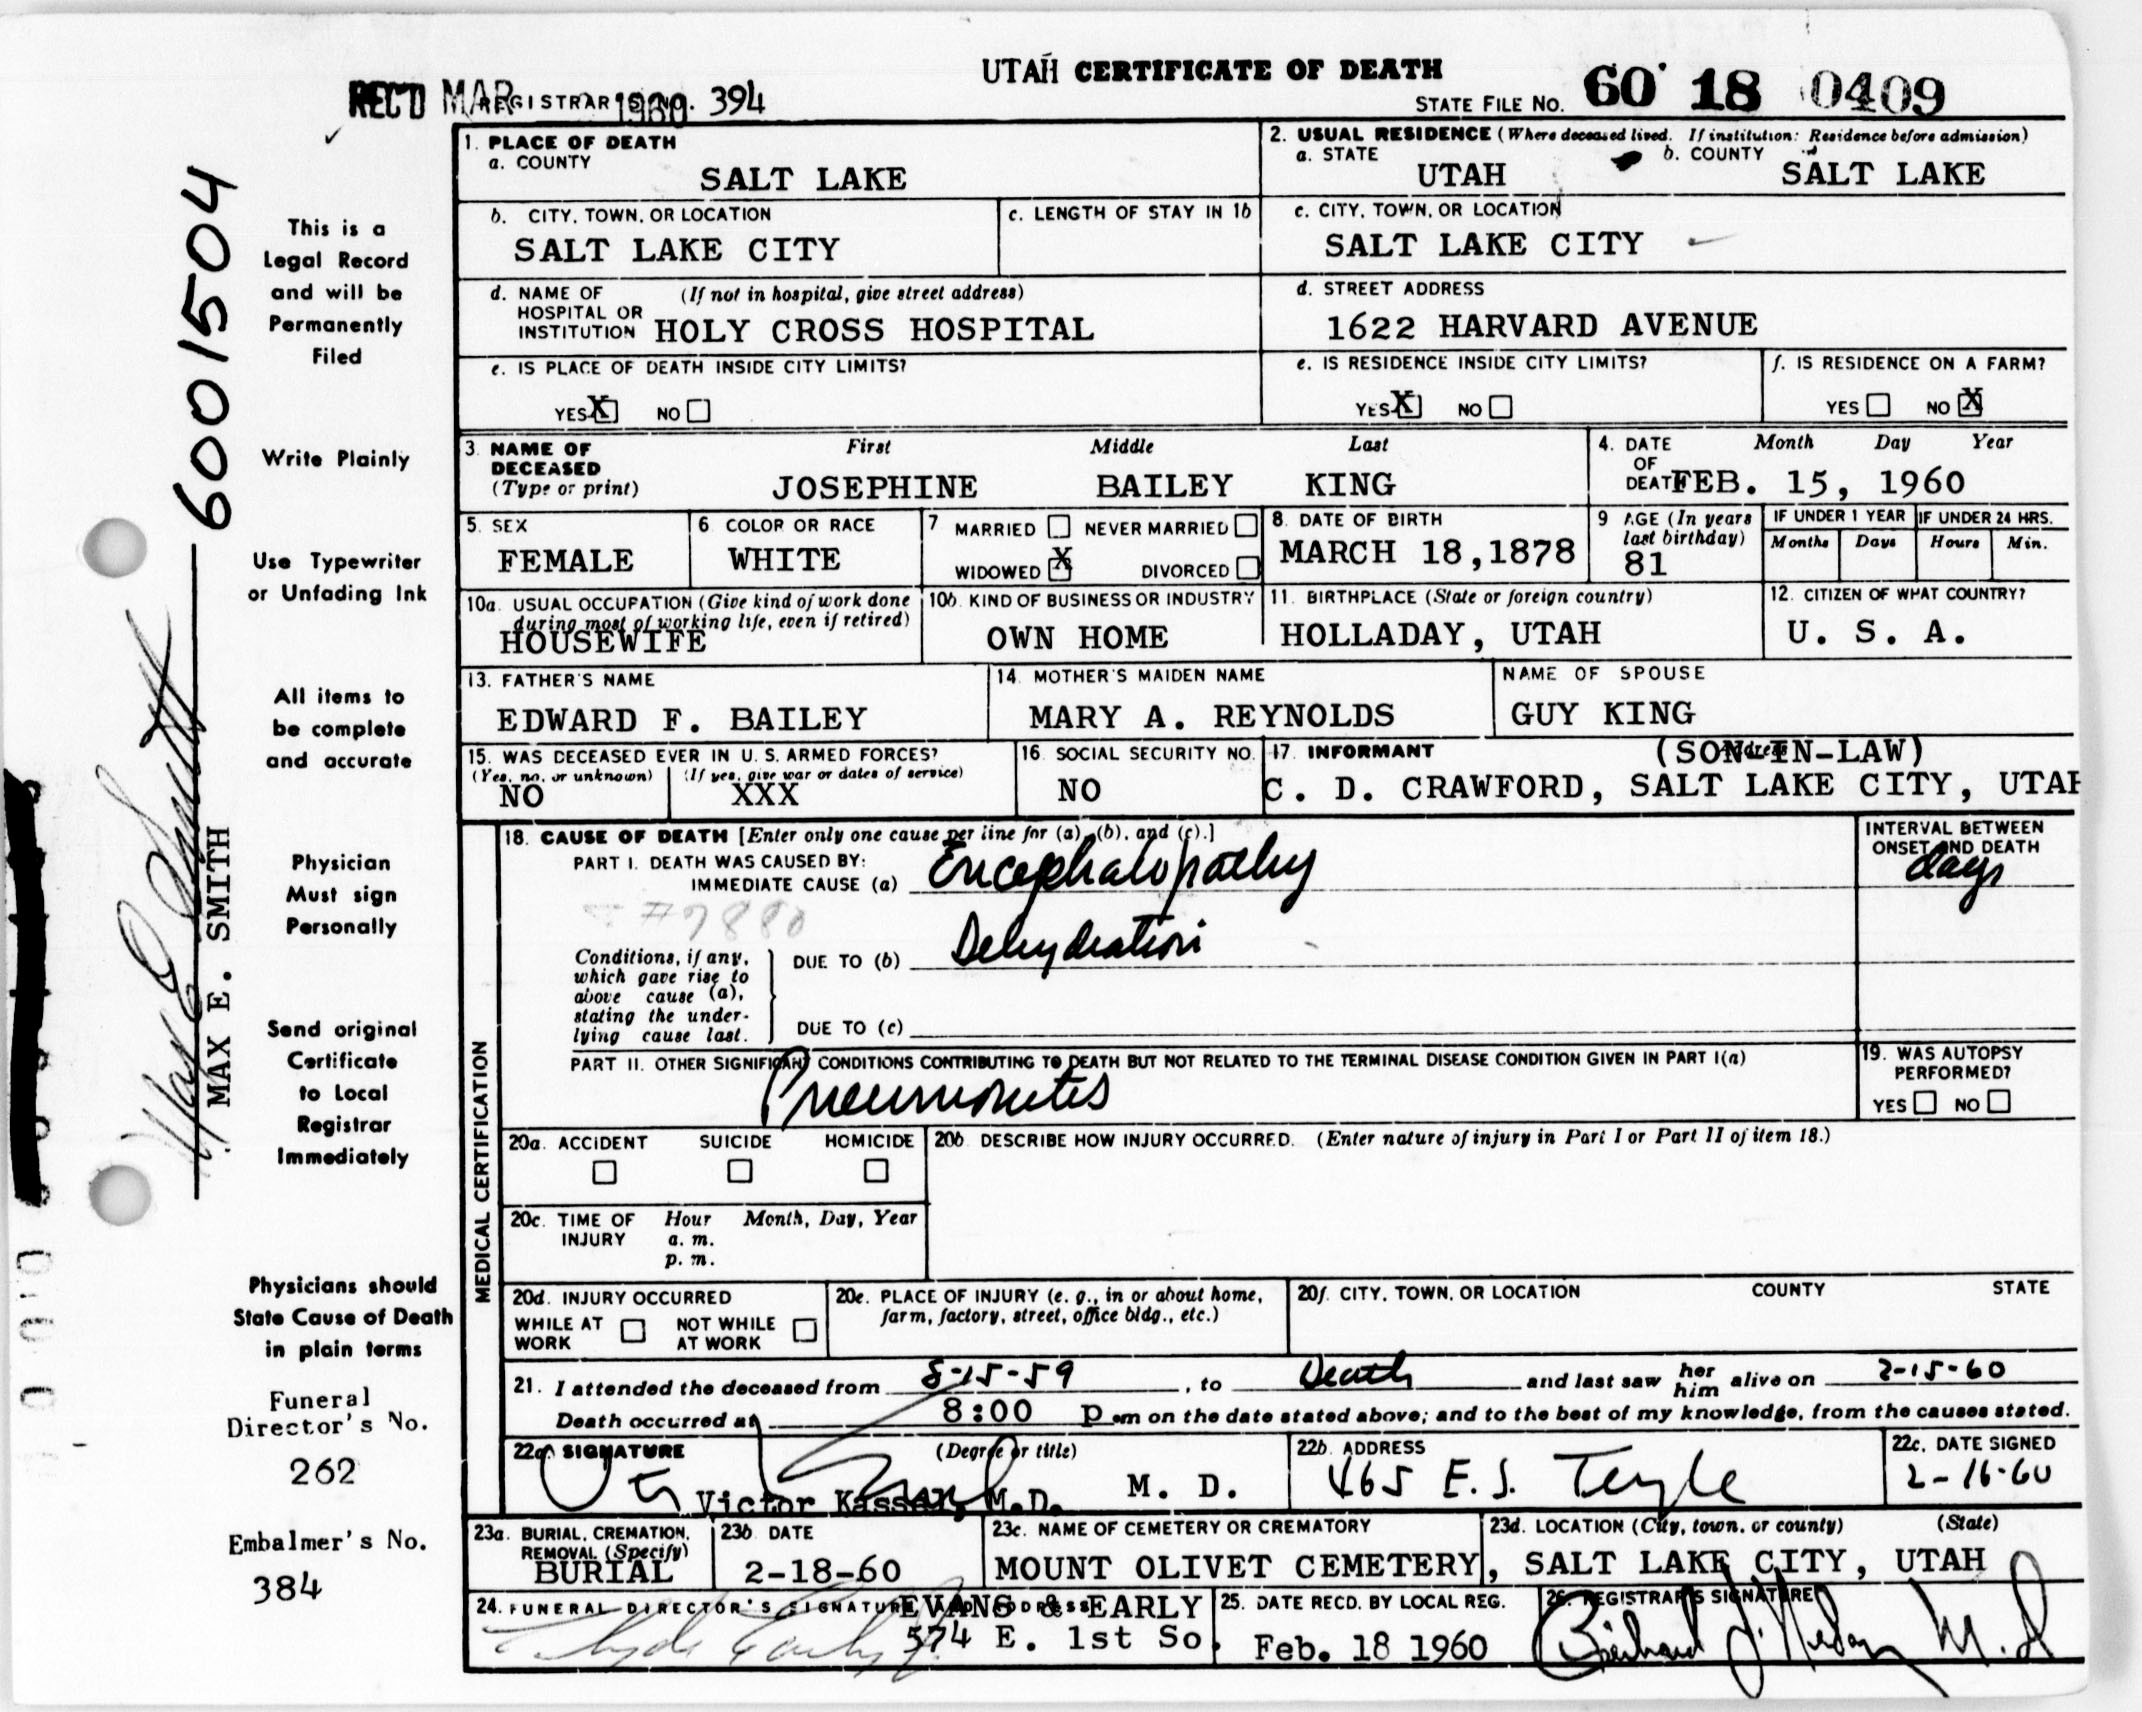 UTAH CERTIFICATE OF DEATH
REC'D MAR 1960 REGISTRAR'S NO. 394
STATE FILE NO. 60 18 0409
6001504
This is a
Legal Record
and will be
Permanently
Filed
Write Plainly
Use Typewriter
or Unfading Ink
All items to
be complete
and accurate
Physician
Must sign
Personally
Send original
Certificate
to Local
Registrar
Immediately
Physicians should
State Cause of Death
in plain terms
Funeral
Director's No.
262
Embalmer's No.
384
Max E. Smith
MAX E. SMITH
1. PLACE OF DEATH
a. COUNTY
SALT LAKE
2. USUAL RESIDENCE (Where deceased lived. If institution: Residence before admission)
a. STATE b. COUNTY
UTAH SALT LAKE
b. CITY, TOWN, OR LOCATION
SALT LAKE CITY
c. LENGTH OF STAY IN 1b
c. CITY, TOWN, OR LOCATION
SALT LAKE CITY
d. NAME OF HOSPITAL OR INSTITUTION (If not in hospital, give street address)
HOLY CROSS HOSPITAL
d. STREET ADDRESS
1622 HARVARD AVENUE
e. IS PLACE OF DEATH INSIDE CITY LIMITS?
YES X NO
e. IS RESIDENCE INSIDE CITY LIMITS?
YES X NO
f. IS RESIDENCE ON A FARM?
YES NO X
3. NAME OF DECEASED (Type or print)
First Middle Last
JOSEPHINE BAILEY KING
4. DATE OF DEATH Month Day Year
FEB. 15, 1960
5. SEX
FEMALE
6 COLOR OR RACE
WHITE
7 MARRIED NEVER MARRIED
WIDOWED X DIVORCED
8. DATE OF BIRTH
MARCH 18,1878
9 AGE (In years last birthday)
81
IF UNDER 1 YEAR IF UNDER 24 HRS.
Months Days Hours Min.
10a. USUAL OCCUPATION (Give kind of work done during most of working life, even if retired)
HOUSEWIFE
10b. KIND OF BUSINESS OR INDUSTRY
OWN HOME
11. BIRTHPLACE (State or foreign country)
HOLLADAY, UTAH
12. CITIZEN OF WHAT COUNTRY?
U. S. A.
13. FATHER'S NAME
EDWARD F. BAILEY
14. MOTHER'S MAIDEN NAME
MARY A. REYNOLDS
NAME OF SPOUSE
GUY KING
15. WAS DECEASED EVER IN U.S. ARMED FORCES?
(Yes, no, or unknown) (If yes, give war or dates of service)
NO XXX
16. SOCIAL SECURITY NO.
NO
17. INFORMANT Address
(SON-IN-LAW)
C. D. CRAWFORD, SALT LAKE CITY, UTAH
MEDICAL CERTIFICATION
18. CAUSE OF DEATH [Enter only one cause per line for (a), (b), and (c).]
PART I. DEATH WAS CAUSED BY:
IMMEDIATE CAUSE (a) Encephalopathy
INTERVAL BETWEEN ONSET AND DEATH
days
#7880
Conditions, if any, which gave rise to above cause (a), stating the underlying cause last.
DUE TO (b) Dehydration
DUE TO (c)
PART II. OTHER SIGNIFICANT CONDITIONS CONTRIBUTING TO DEATH BUT NOT RELATED TO THE TERMINAL DISEASE CONDITION GIVEN IN PART I(a)
Pneumonitis
19. WAS AUTOPSY PERFORMED?
YES NO
20a. ACCIDENT SUICIDE HOMICIDE
20b. DESCRIBE HOW INJURY OCCURRED. (Enter nature of injury in Part I or Part II of item 18.)
20c. TIME OF INJURY Hour Month, Day, Year
a. m.
p. m.
20d. INJURY OCCURRED
WHILE AT WORK NOT WHILE AT WORK
20e. PLACE OF INJURY (e. g., in or about home, farm, factory, street, office bldg., etc.)
20f. CITY, TOWN, OR LOCATION COUNTY STATE
21. I attended the deceased from 8-15-59, to Death and last saw her him alive on 2-15-60
Death occurred at 8:00 p m on the date stated above; and to the best of my knowledge, from the causes stated.
22a. SIGNATURE (Degree or title)
Victor Kassel, M.D. M. D.
22b. ADDRESS
465 E. S. Temple
22c. DATE SIGNED
2-16-60
23a. BURIAL, CREMATION, REMOVAL (Specify)
BURIAL
23b. DATE
2-18-60
23c. NAME OF CEMETERY OR CREMATORY
MOUNT OLIVET CEMETERY,
23d. LOCATION (City, town, or county) (State)
SALT LAKE CITY, UTAH
24. FUNERAL DIRECTOR'S SIGNATURE AND ADDRESS
EVANS & EARLY
574 E. 1st So.
25. DATE RECD. BY LOCAL REG.
Feb. 18 1960
26. REGISTRAR'S SIGNATURE
M.D.